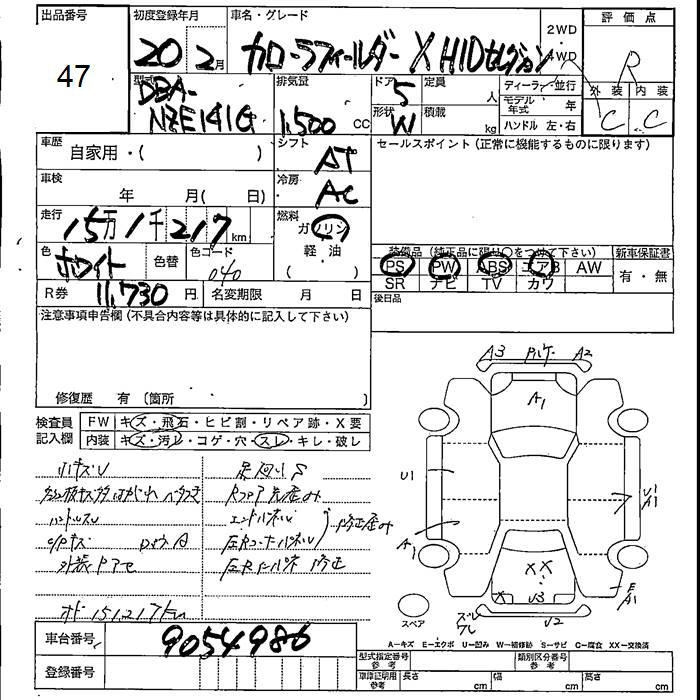 出品番号 初度登録年月 車名・グレード 2WD 評価点
47 20年 2月 カローラフィールダー X HIDセレクション 4WD R
型式 排気量 ドア 定員 ディーラー・並行 外装 内装
DBA-NZE141G 1,500 CC 5 人 モデル年式 年 C C
形状 W 積載 kg ハンドル 左・右
車歴 自家用・( ) シフト AT セールスポイント (正常に機能するものに限ります)
車検 年 月( 日) 冷房 AC
走行 15万1千217 km 燃料 ガソリン
色 ホワイト 色替 色コード 040 軽油 ( )
装備品 (純正品に限り○をつけて下さい) 新車保証書
PS PW ABS エアB AW 有・無
SR ナビ TV カワ
R券 11,730 円 名変期限 月 日 後日品
注意事項申告欄 (不具合内容等は具体的に記入して下さい)
修復歴 有 〔箇所
検査員記入欄 FW キズ・飛石・ヒビ割・リペア跡・X要
内装 キズ・汚レ・コゲ・穴・スレ・キレ・破レ
小キズU
ハンドルスレ
外装色アセ
オド151217km
A3 A2
A1
U1
U1 A1
A1
XX
X U3
E A1
U2
スペア
A−キズ E−エクボ U−凹み W−補修跡 S−サビ C−腐食 XX−交換済
車台番号 9054986
登録番号
型式指定番号 参考 類別区分番号 参考
車庫証明用 参考 長さ cm 幅 cm 高さ cm